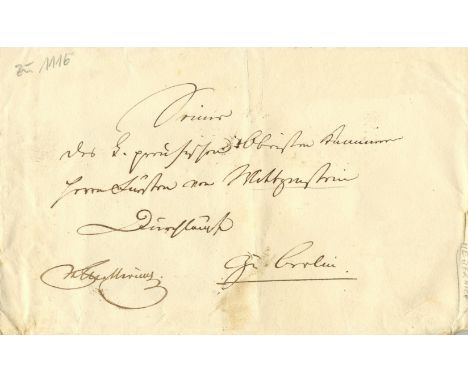 zu 1116
Seiner
des K. preußischen Obristen Kammer
Herrn Fürsten von Wittgenstein
Durchlaucht
Zu Berlin.